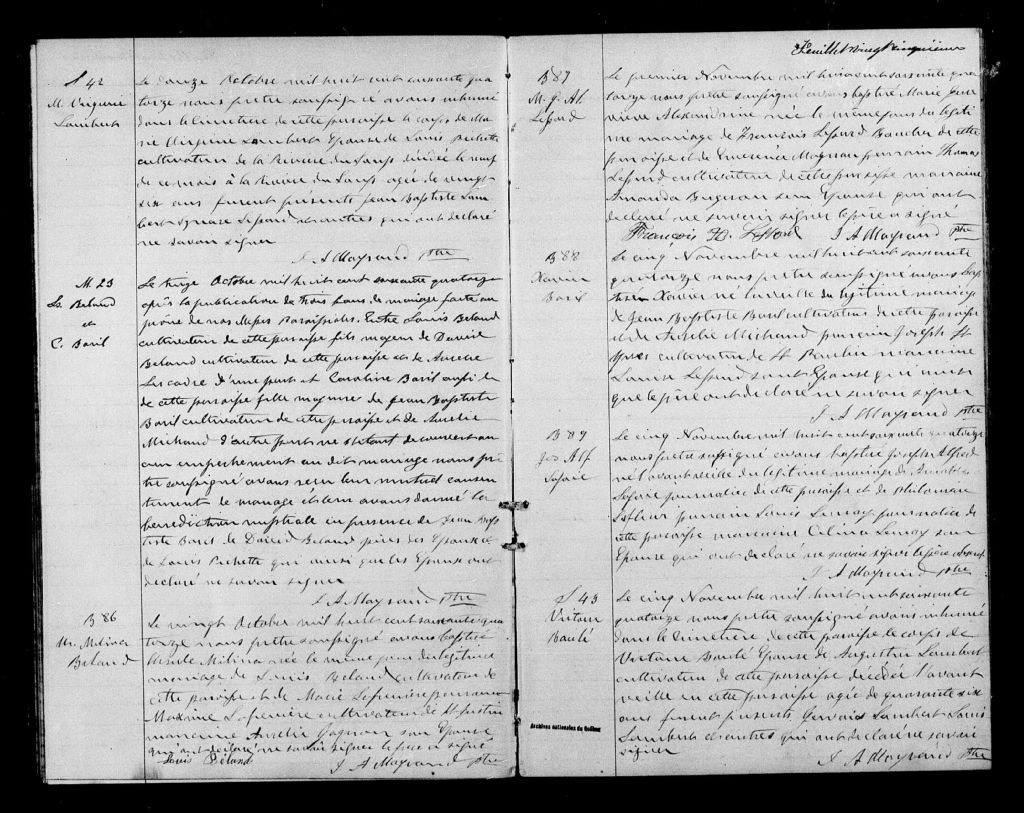 S 42
M. Virginie
Lambert
Le douze Octobre mil huit cent soixante qua
torze nous prêtre soussigné avons inhumé
dans le Cimetière de cette paroisse le corps de Ma
rie Virginie Lambert Epouse de Louis Pichette
cultivateur de la Rivière du Loup décédée le neuf
de ce mois à la Rivière du Loup agée de vingt
six ans furent présents Jean Baptiste Lam
bert Ignace Lesard et autres qui ont déclaré
ne savoir signer
J A Mayrand Ptre
M. 23
Ls. Beland
et
C. Baril
Le treize Octobre mil huit cent soixante quatorze
après la publication de trois bans de mariage faite au
prône de nos Messes Paroissiales. Entre Louis Beland
cultivateur de cette paroisse fils mojeur de David
Beland cultivateur de cette paroisse et de Aurelie
d'une part et Caroline Baril aussi de
de cette paroisse fille majeure de Jean Baptiste
Baril cultivateur de cette paroisse et de Aurelie
Michaud d'autre part ne s'étant découvert au
cun empechement au dit mariage nous prê
tre soussigné avons reçu leur mutuel consen
tement de mariage et leur avons donné la
benediction nuptiale en presence de Jean Bap
tiste Baril de David Beland pères des Epoux et
de Louis Pichette qui ainsi que les Epoux ont
declaré ne savoir signer
J A Mayrand Ptre
B 86
Ur. Milina
Beland
Le vingt Octobre mil huit cent soixante qua
torze nous prêtre soussigné avons baptisé
Ursule Milina née le même jour du legitime
mariage de Louis Beland cultivateur de
cette paroisse et de Marie Lefrenière parrain
Maxime Lefrenière cultivateur de St Justin
marraine Aurelie Gagnon son Epouse
qui ont declaré ne savoir signer le père a signé
Louis Béland
J A Mayrand Ptre
Feuillet vingt cinquième
B 87
M. G. Al.
Lesard
Le premier Novembre mil huit cent soixante qua
torze nous prêtre soussigné avons baptisé Marie Gene
vieve Alexandrine née le même jour du legiti
me mariage de François Lesard Boucher de cette
paroisse et de Emerence Magnan parrain Thomas
Lesard cultivateur de cette paroisse marraine
Amanda son Epouse qui ont
declaré ne savoir signer le père a signé
François Lesard
J A Mayrand Ptre
B 88
Xavier
Baril
Le cinq Novembre mil huit cent soixante
quatorze nous prêtre soussigné avons bap
tisé Xavier né la veille du légitime mariage
de Jean Baptiste Baril cultivateur de cette paroisse
et de Aurelie Michaud parrain Joseph St
Yves cultivateur de St Paulin marraine
Louise Lesard son Epouse qui ainsi
que le père ont declaré ne savoir signer
J A Mayrand Ptre
B 89
Jos Alf
Lafoie
Le cinq Novembre mil huit cent soixante quatorze
nous prêtre soussigné avons baptisé Joseph Alfred
né l'avant veille du légitime mariage de
journalier de cette paroisse et de Philomène
Lafleur parrain Louis Lemay journalier de
cette paroisse marraine Celina Lemay son
Epouse qui ont declaré ne savoir signer le père absent
J A Mayrand Ptre
S 43
Victoire
Bauté
Le cinq Novembre mil huit cent soixante
quatorze nous prêtre soussigné avons inhumé
dans le Cimetière de cette paroisse le corps de
Victoire Bauté Epouse de Augustin Lambert
cultivateur de cette paroisse décédée l'avant
veille en cette paroisse agée de quarante six
ans furent presents Gervais Lambert Louis
Lambert et autres qui ont declaré ne savoir
signer
J A Mayrand Ptre
Archives nationales du Québec